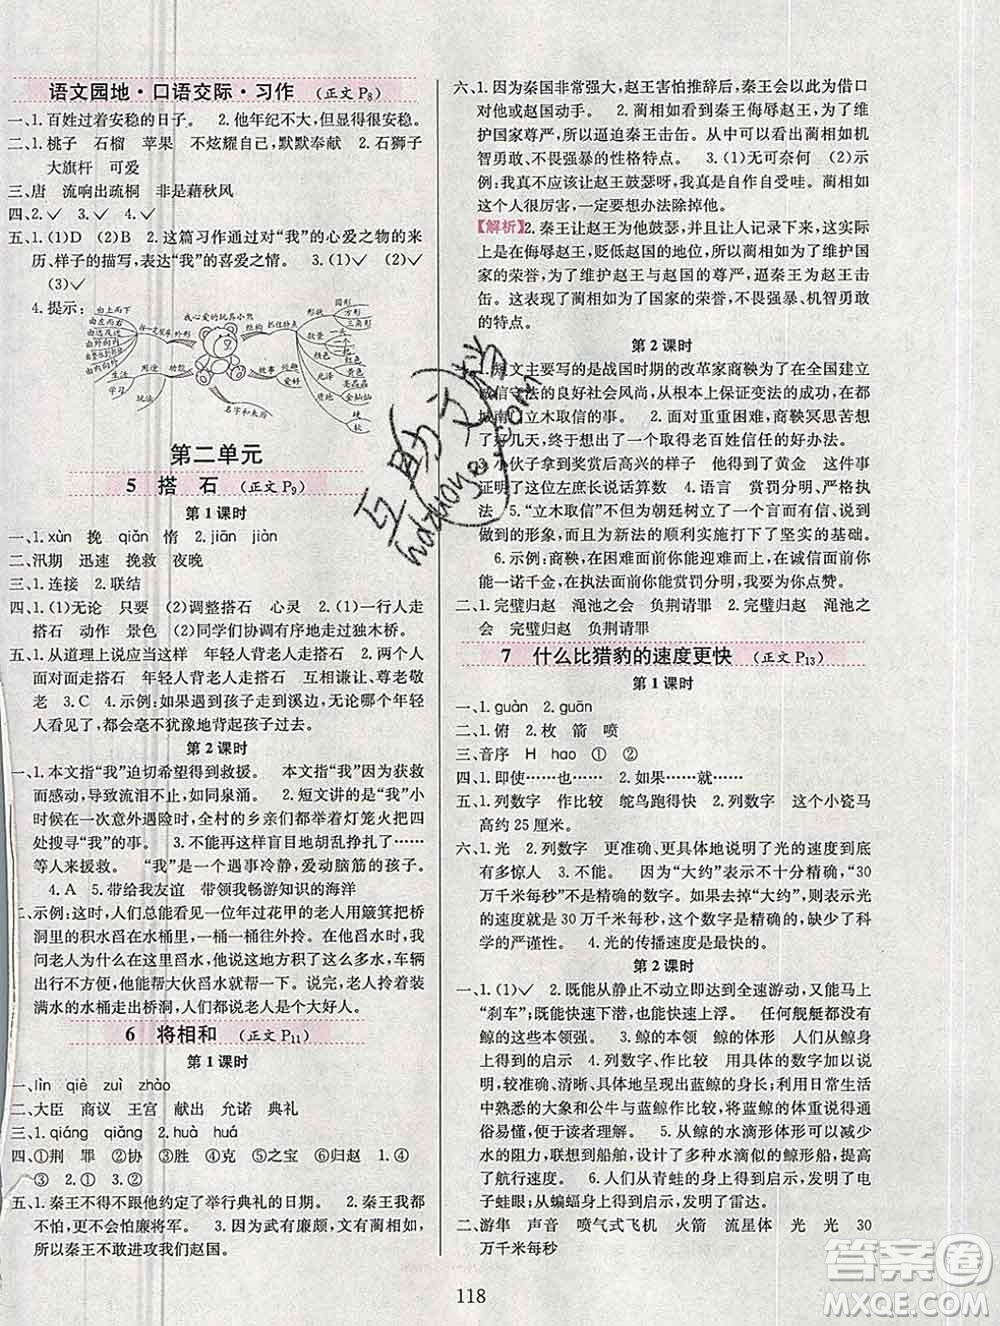 语文园地·口语交际·习作 (正文P8)
一、1.百姓过着安稳的日子。 2.他年纪不大,但做事很安稳。
二、1.桃子 石榴 苹果 不炫耀自己,默默奉献 2.石狮子
大旗杆 可爱
三、唐 流响出疏桐 非是藉秋风
四、2.✓ 3.✓ 4.✓
五、1.(1)D (2)B 2.这篇习作通过对“我”的心爱之物的来
历、样子的描写,表达“我”的喜爱之情。 3.(1)✓ (2)✓
(3)✓
4.提示:
我心爱的玩具小熊
由上而下
由左而右
由远及近
由外而内
按一定顺序
外形
功能
用途
玩法
生活
学习
结构
抓住特点
形状
圆形
方形
三角形
软萌
颜色
黄色
光泽
亮晶晶
金灿灿
质地
故事
有趣
爱好
名字和来历
第二单元
5 搭 石 (正文P9)
第1课时
一、1.xùn 挽 qiǎn 惰 2.jiān jiàn
二、汛期 迅速 挽救 夜晚
三、1.连接 2.联结
四、1.(1)无论 只要 (2)调整搭石 心灵 2.(1)一行人走
搭石 动作 景色 (2)同学们协调有序地走独木桥。
五、1.从道理上说应当这样 年轻人背老人走搭石 2.两个人
面对面走搭石 年轻人背老人走搭石 互相谦让、尊老敬
老 3.C 4.示例:如果遇到孩子走到小溪边,无论哪个年轻
人看见了,都会毫不犹豫地背起孩子过去。
第2课时
一、1.本文指“我”迫切希望得到救援。 本文指“我”因为获救
而激动,导致流泪不止,如同泉涌。 2.短文讲的是“我”小时候
在一次意外遇险时,全村的人都打着灯笼火把四
处搜寻“我”的事。 3.不能再这样盲目地胡乱挣扎了……
等人来援救。 “我”是一个遇事冷静,爱动脑筋的孩子。
4.A 5.带给我友谊 带领我畅游知识的海洋
二、示例:这时,人们总能看见一位年过花甲的老人用簸箕把桥
洞里的积水舀在水桶里,一桶一桶地向外拎。他在舀水,我
问老人为什么舀水,他说桥洞里积了这么多水,车辆
行人怎么过呀,我得帮大伙舀水呢。每当老人拎着盛
满水的水桶走出桥洞,人们都说老人是个大好人。
6 将相和 (正文P11)
第1课时
一、lìn qiè zuì zhào
二、大臣 商议 王宫 献出 允诺 典礼
三、1.qiáng qiǎng 2.huà huá
四、①荆 罪 ②份 ③胜 ④克 ⑤之宝 ⑥归赵 1.④
⑥ 2.① 3.②
五、1.秦王不得不跟他约定了举行典礼的日期。 2.秦王我都
不怕,更不会怕廉将军。 3.因为武有廉颇,文有蔺相如,
所以秦王不敢进攻我们赵国。
六、1.因为秦国非常强大,赵王害怕推辞后,秦王会以此为借口
对他或赵国动手。 2.蔺相如看到秦王侮辱赵王,为了维
护国家尊严,所以逼迫秦王击缶。 这表现了蔺相如的机
智勇敢、不畏强暴的性格特点。 3.(1)无可奈何 (2)示
例:我真不应该让赵王鼓瑟呀,真是自作自受哇。蔺相如
这个人很厉害,一定要想办法除掉他。
【解析】2.秦王让赵王为他鼓瑟,并且让人记录下来,这实际
上是在侮辱赵王,贬低赵国的地位,所以为了维护赵国国
家的荣誉,为了维护赵王与赵国的尊严,逼秦王为赵王击
缶。这表现了蔺相如为了国家的荣誉,不畏强暴、机智勇敢
的特点。
第2课时
一、1.短文主要写的是战国时期的改革家商鞅为了在全国建立
诚信守法的良好社会风尚,从根本上保证变法的成功,在都
城南门立木取信的事。 2.面对重重困难,商鞅冥思苦想
了好几天,终于想出了一个取得老百姓信任的好办法。
3.小伙子拿到奖赏后高兴的样子 他得了黄金 这件事
证明了商鞅这个左庶长说话算数 4.语言 赏罚分明、严
格执法 5.“立木取信”不但为朝廷树立了一言九鼎、说到
做到的形象,而且为新法的顺利实施打下了坚实的基础。
6.示例:商鞅,在困难面前你能迎难而上,在诚信面前你
能一诺千金,在执法面前你能赏罚分明,我为你点赞。
二、1.完璧归赵 渑池之会 负荆请罪 2.完璧归赵 渑池之
会 完璧归赵 负荆请罪
7 什么比猎豹的速度更快 (正文P13)
第1课时
一、1.guàn 2.guān
二、1.俯 2.枚 箭 喷
三、音序 H hao ① ②
四、1.即使……也…… 2.如果……就……
五、1.列数字 作比较 鸵鸟跑得快 2.列数字 这个小瓷马
高约25厘米。
六、1.光 2.列数字 更准确、更具体地说明了光的速度到底
有多惊人 3.不可以。 因为“大约”表示不十分精确,“30
万千米每秒”不是精确的数字。如果去掉“大约”,就变成光
的速度就是30万千米每秒,这个数字是精确的,缺少了科
学的严谨性。 4.光的传播速度是最快的。
第2课时
一、1.(1)✓ 2.既能从静止不动立即达到全速游动,又能马上
“刹车”;既能快速下潜,也能快速上浮。 任何舰艇都没有
鲸的这些本领强。 3.鲸的本领 鲸的体形 人类从鲸的
身上得到的启示 4.列数字、作比较 用具体的数字和比
较,准确、清晰、具体地呈现出了蓝鲸的身长;通过与人们
较熟悉的大象和公牛与蓝鲸作比较,将蓝鲸的体重写得通
俗易懂,便于读者理解。 5.蓝鲸的水滴形体形可以减少
水的阻力,联想到船舶,设计了多种水滴似的鲸形船,提高
了航行速度。 6.人们从青蛙的身上得到启示,发明了电
子蛙眼;从蝙蝠身上得到启示,发明了雷达。
二、游隼 声音 喷气式飞机 火箭 流星体 光 光 30
万千米每秒
118
互助文档
hdzuoye.com
答案圈
MXQE.COM